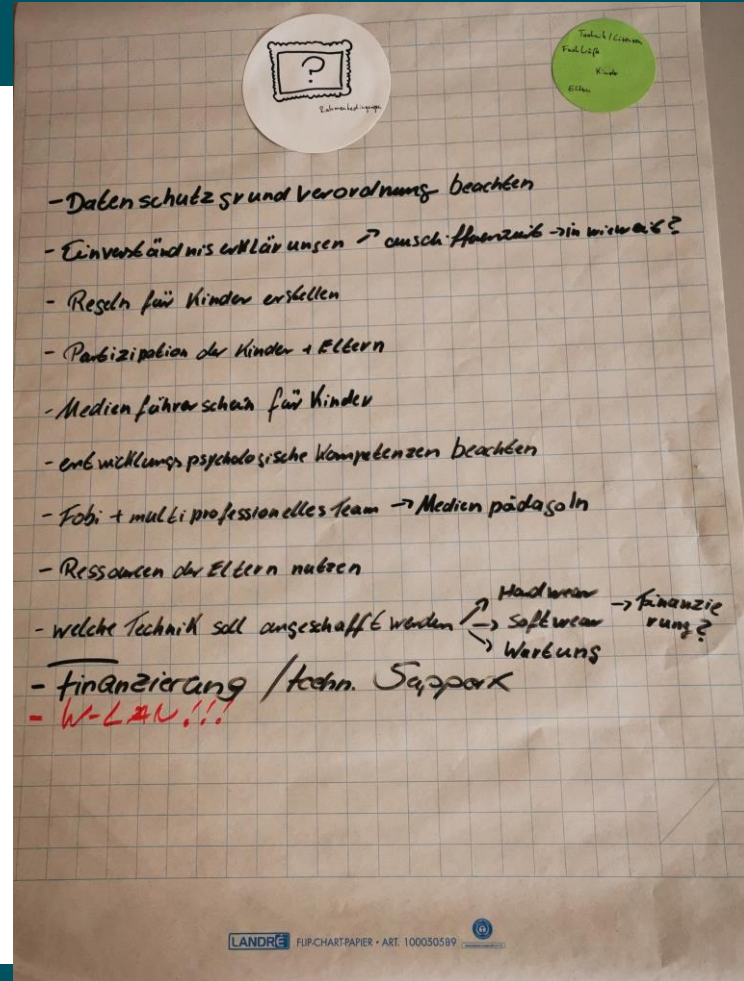 ?
Rahmenbedingungen
Technik / Literatur
Fachkräfte
Kinder
Eltern
- Datenschutzgrundverordnung beachten
- Einverständniserklärungen → → in wieweit?
- Regeln für Kinder erstellen
- Partizipation der Kinder + Eltern
- Medienführerschein für Kinder
- entwicklungspsychologische Kompetenzen beachten
- Fobi + multiprofessionelles Team → Medienpädagoln
- Ressourcen der Eltern nutzen
- welche Technik soll angeschafft werden → Hardwear
→ Softwear
→ Wartung
→ Finanzie
rung?
- Finanzierung / techn. Support
- W-LAN!!!
LANDRÉ FLIP-CHART-PAPIER • ART. 100050589